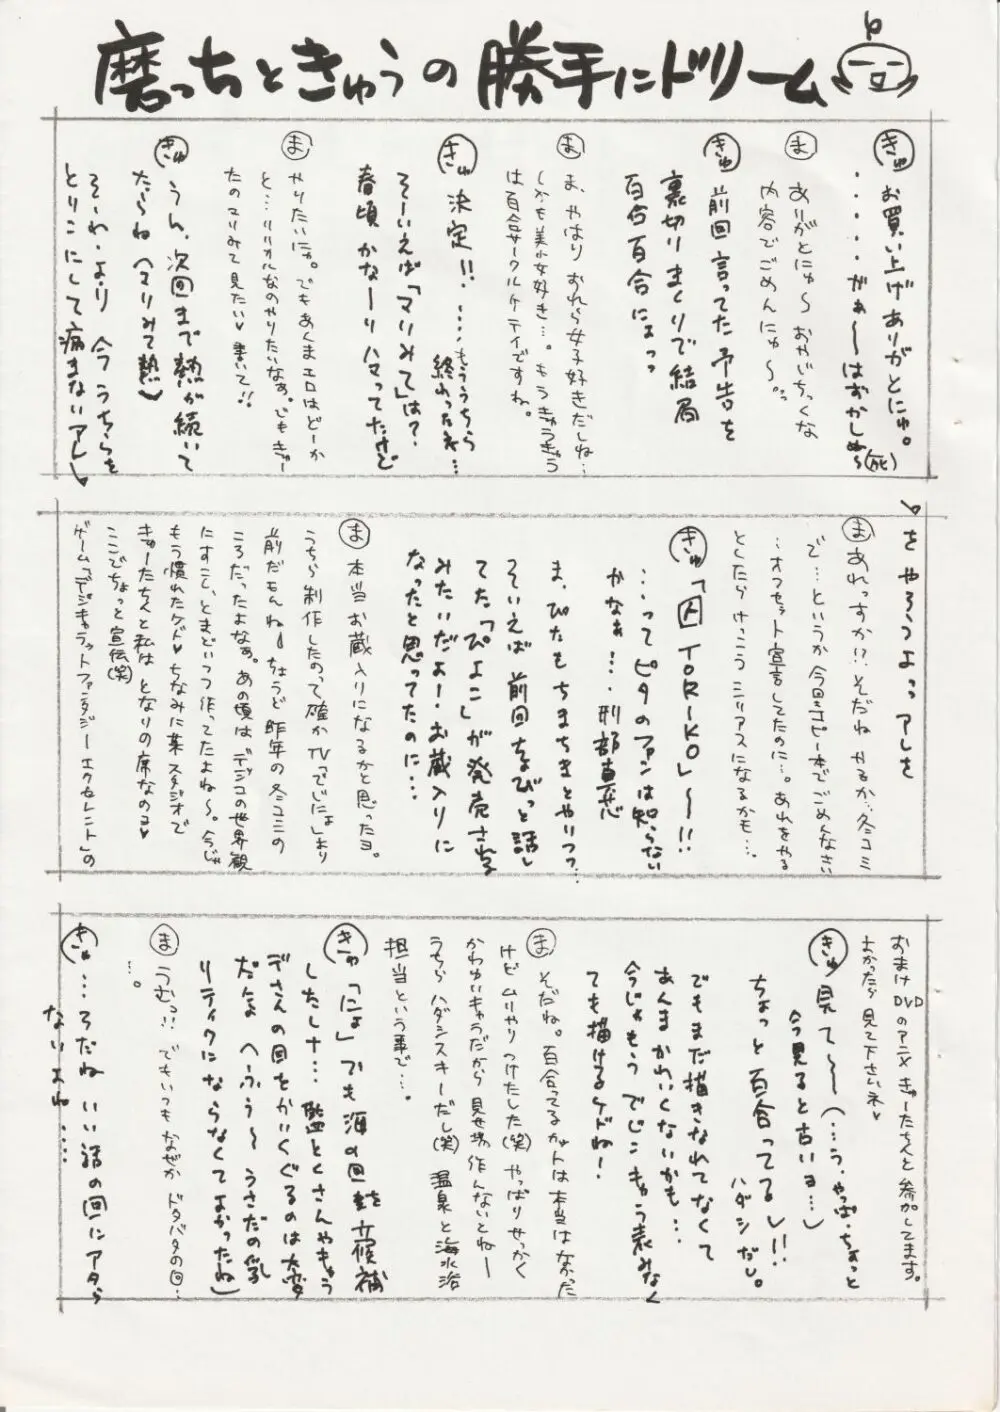 磨っちときゅうの勝手にドリーム
きゅ お買い上げありがとにゅ。
・・・・がぁ〜〜はずかしめ〜(死)
ま ありがとにゅ〜 おやじちっくな
内容でごめんにゅ〜。
きゅ 前回言ってた予告を
裏切りまくりで結局
百合百合にょっっ
ま ま、やはり おれら女子好きだしね…
しかも美少女好き…。もうきゅうきゅう
は百合サークルケテイですね。
きゅ 決定!! ・・・・もううちら
終わったネ…
そーいえば「マリみて」は?
春頃かな―りハマってたけど
ま やりたいにゅ。でもあくまエロはどーか
と…リリカルなのやりたいなぁ。でもきゅー
たのマリみて見たい♥書いて!!
きゅ うん、次回まで熱が続いて
たらね(マリみて熱)
そーれ・より 今うちらを
とりこにして痛まないアレ
をやろうよっっ アレを
ま あれっすか!?そだね やるか…冬コミ
で…というか今回コピー本でごめんなさい
…オフセット宣言してたのに…。あれをやる
としたらけっこうシリアスになるかも…。
きゅ「囚 TORIKO」〜!!
…ってピタのファンは知らない
かなぁ…刑部真芯
ま、ぴたもちまちまとやりつつ…
そいえば前回ちょびっと話し
てた「ぴよこ」が発売される
みたいだよー・お蔵入りに
なったと思ってたのに…
ま 本当お蔵入りになるかと思ったヨ。
うちら制作したのって確かTV「でじにょ」より
前だもんね ちょうど昨年の冬コミの
ころだったよなぁ。あの頃はデジコの世界観
にすこし、とまどいつつ作ってたよね〜。今じゃ
もう慣れたケド♥ちなみに某スタジオで
きゅーたちんと私は となりの席なの♥
ここでちょっと宣伝(笑)
ゲーム「デ・ジ・キャラットファンタジーエクセレント」の
おまけDVDのアニメ きゅーたちんと参加してます。
よかったら見て下さいネ♥
きゅ 見て〜〜(…う、やっぱ、ちょっと
今見ると古いョ…)
ちょっと百合ってるし!!
ハダシだし。
でもまだ描きなれてなくて
あんまかわいくないかも…
今じゃもうでじこキャラ表みなく
ても描けるケドね!
ま そだね。百合ってるカットは本当はなかった
けどムリやりつけたした(笑)やっぱりせっかく
かわゆいキャラだから見せ場作んないとねー
うちらハダシスキーだし(笑)温泉と海水浴
担当という事で…。
きゅ「にょ」でも海の回を立候補
したしナ… 監とくさんやキャラ
デさんの目をかいくぐるのは大変
だよ へふぅ〜 うさだの乳
リティクにならなくてよかったね)
ま うむっ!! でもいつもなぜか ドタバタの回…
…。
きゅ …そだね いい話の回にアタら
ないよね・・・・